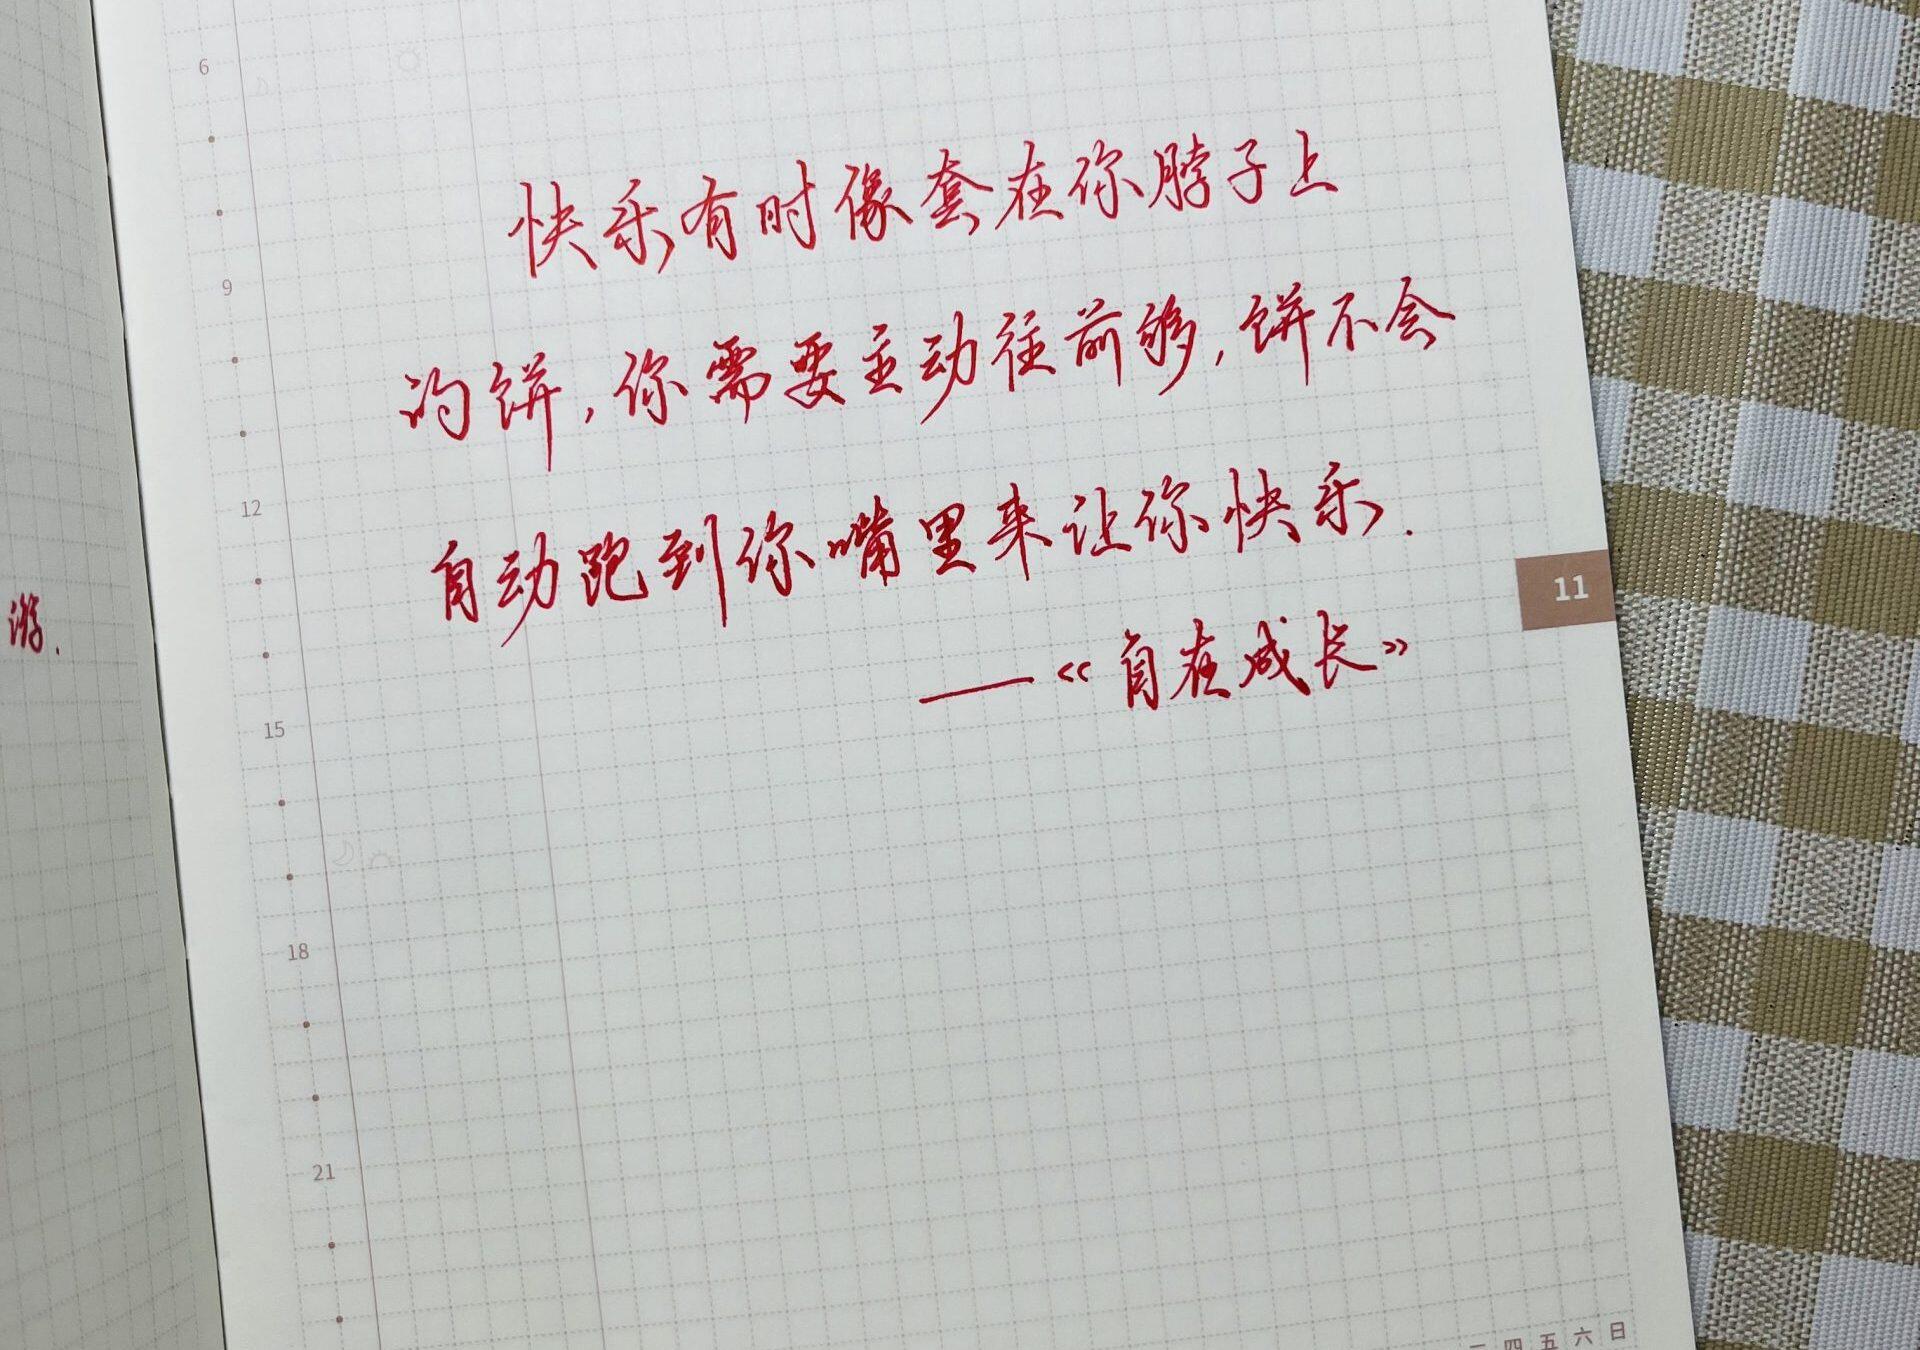 6
快乐有时像套在你脖子上
9
的饼,你需要主动往前够,饼不会
12
自动跑到你嘴里来让你快乐.
11
游.
——《自在成长》
15
18
21
四五六日